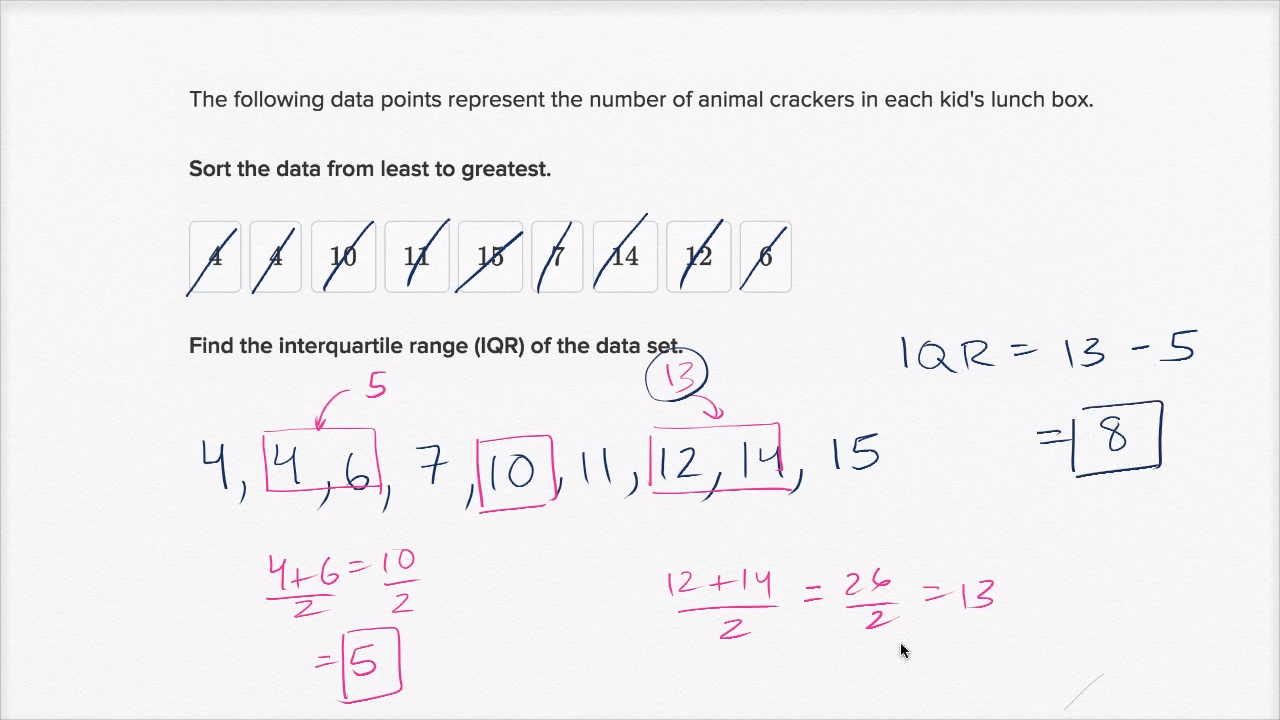 The following data points represent the number of animal crackers in each kid's lunch box.
Sort the data from least to greatest.
4 4 10 11 15 7 14 12 6
Find the interquartile range (IQR) of the data set.
IQR = 13 - 5
= 8
5 13
4, 4, 6, 7, 10, 11, 12, 14, 15
4+6/2 = 10/2
= 5
12+14/2 = 26/2 = 13